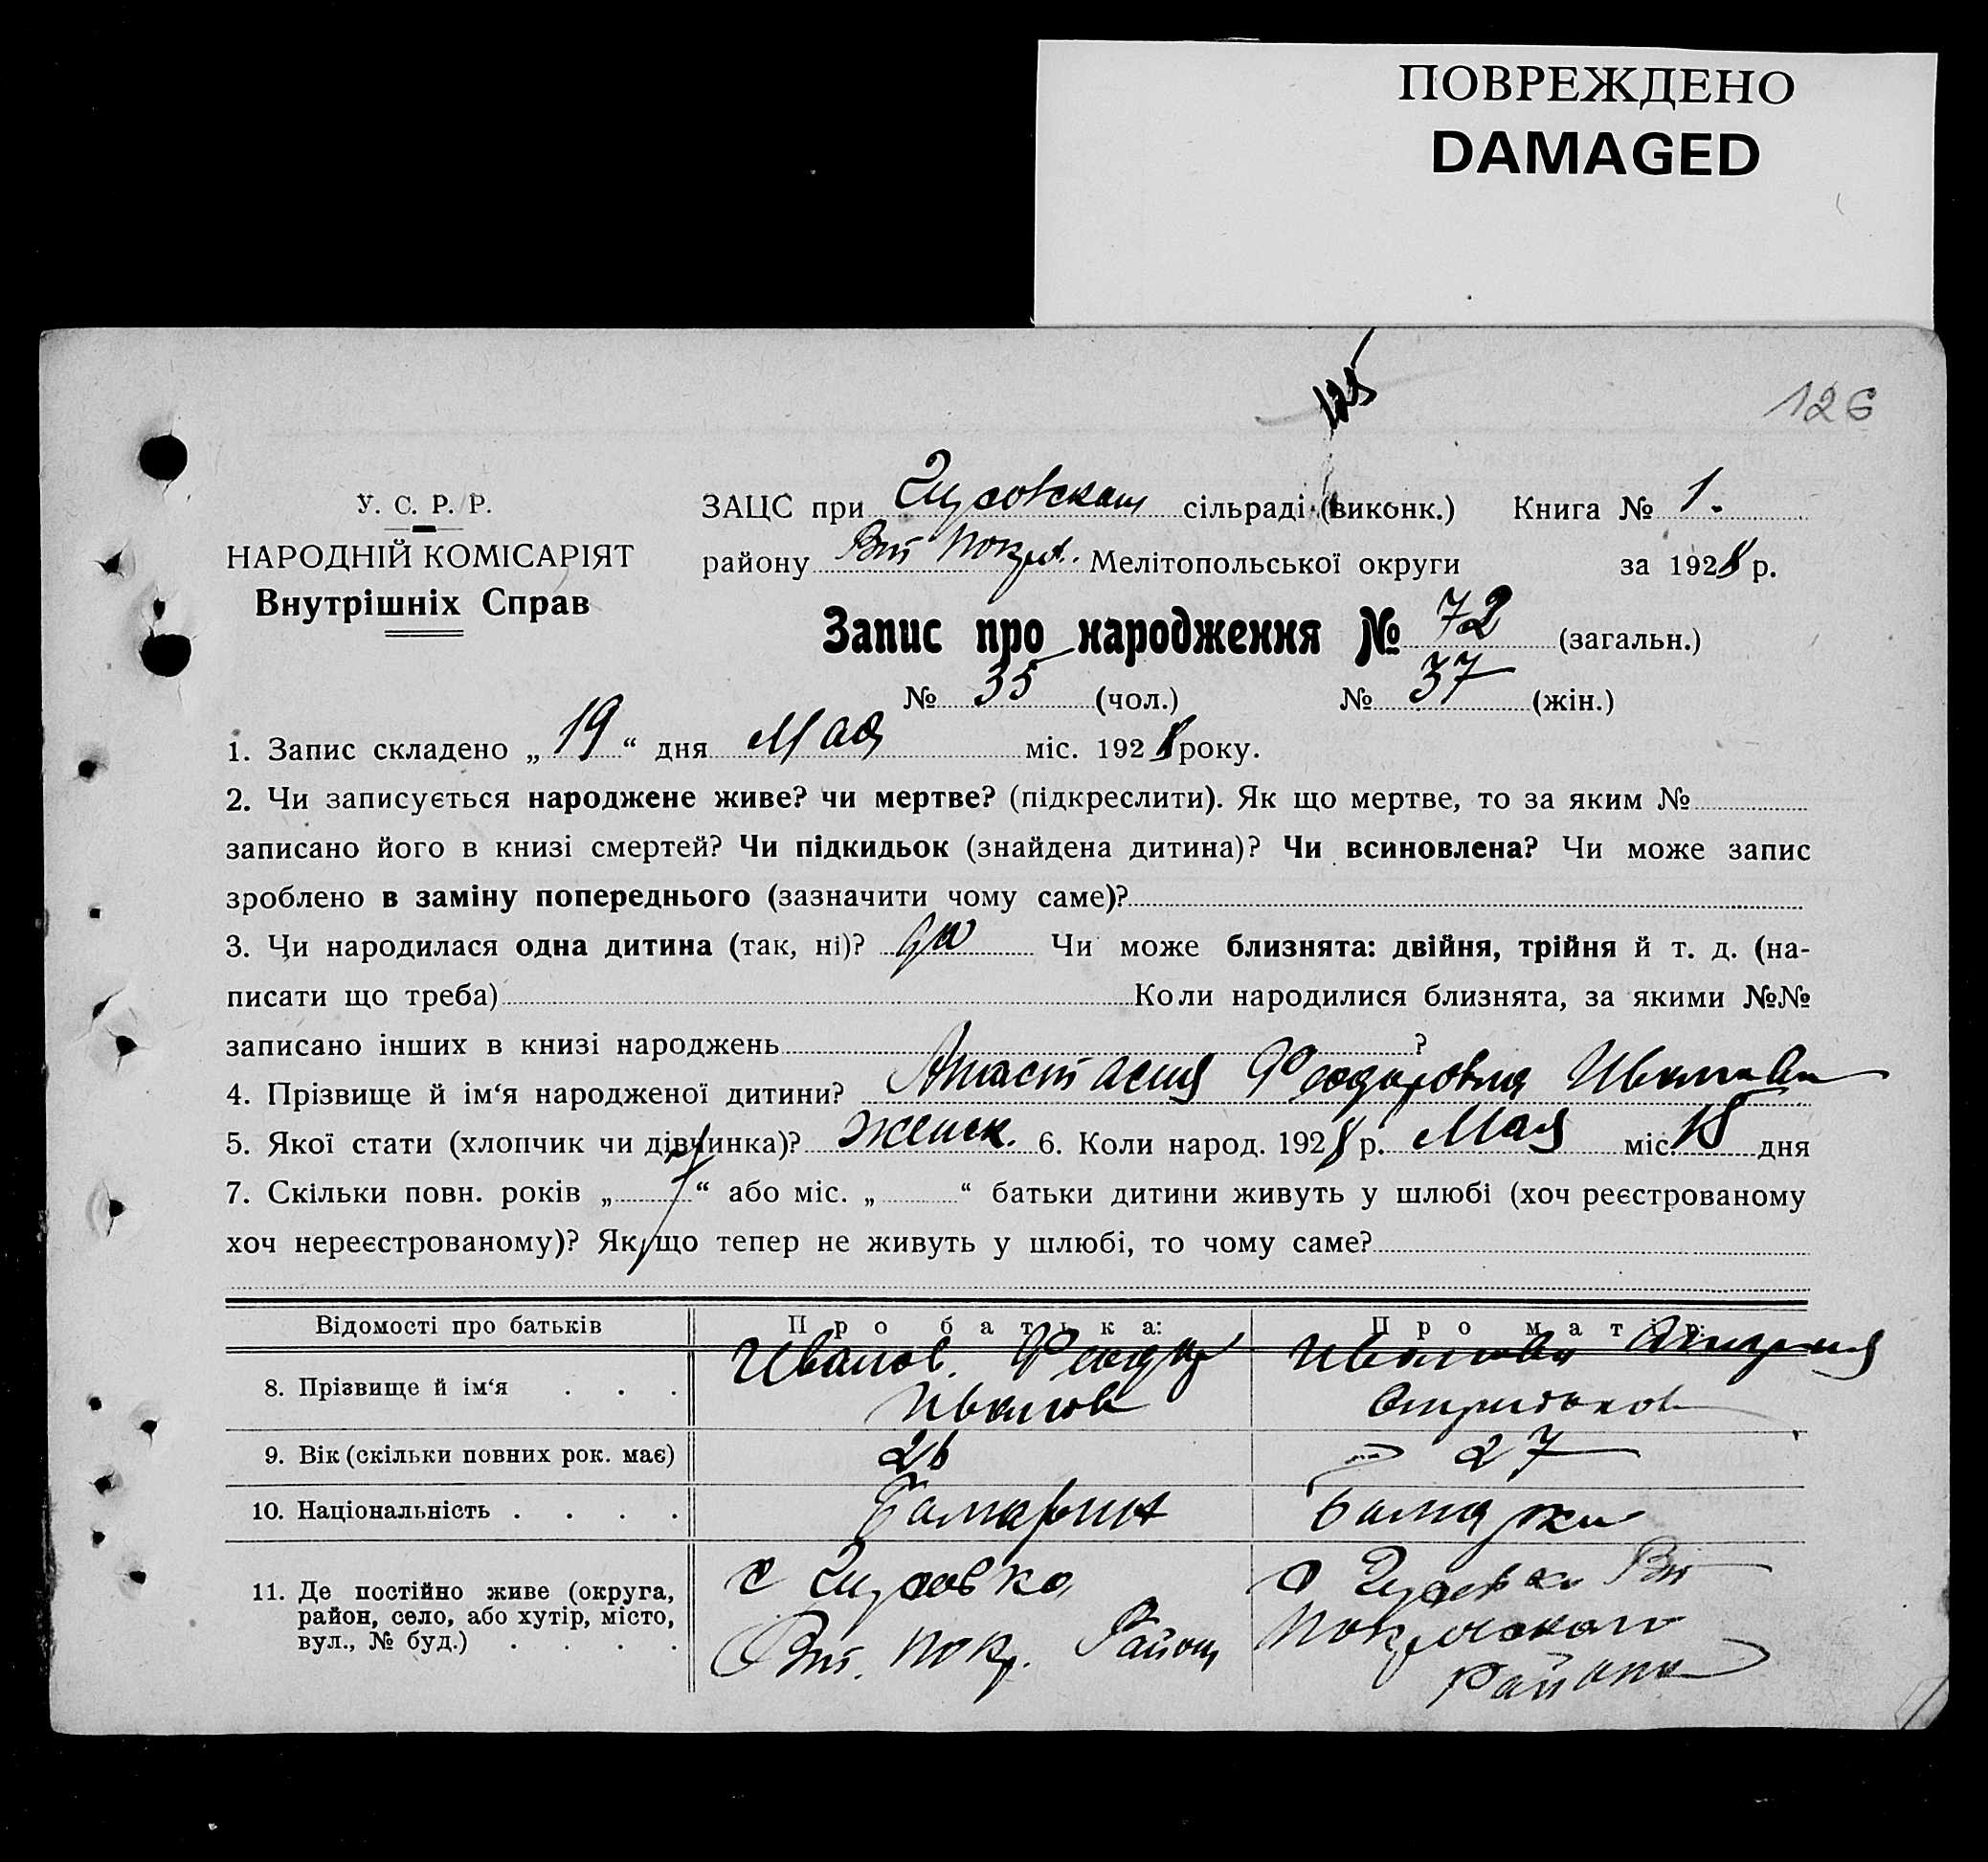 ПОВРЕЖДЕНО
DAMAGED
125
126
У. С. Р. Р.
НАРОДНІЙ КОМІСАРІЯТ
Внутрішніх Справ
ЗАЦС при сільраді (виконк.) Книга № 1.
району Мелітопольської округи за 1928 р.
Запис про народження № 72 (загальн.)
№ 35 (чол.) № 37 (жін.)
1. Запис складено „19“ дня Мая міс. 1928 року.
2. Чи записується народжене живе? чи мертве? (підкреслити). Як що мертве, то за яким №
записано його в книзі смертей? Чи підкидьок (знайдена дитина)? Чи всиновлена? Чи може запис
зроблено в заміну попереднього (зазначити чому саме)?
3. Чи народилася одна дитина (так, ні)? да Чи може близнята: двійня, трійня й т. д. (на-
писати що треба) Коли народилися близнята, за якими №№
записано інших в книзі народжень ?
4. Прізвище й ім‘я народженої дитини? Анастасия Феодоровна Иванова
5. Якої стати (хлопчик чи дівчинка)? Женск. 6. Коли народ. 1928 р. Мая міс. 18 дня
7. Скільки повн. років „ “ або міс. „ “ батьки дитини живуть у шлюбі (хоч реєстрованому
хоч нереєстрованому)? Як що тепер не живуть у шлюбі, то чому саме?
Відомості про батьків Про батька: Про матір:
8. Прізвище й ім‘я . . . Иванов Феодор Иванова
Иванов
9. Вік (скільки повних рок. має) 26 27
10. Національність . . . . Болгарин Болгарка
11. Де постійно живе (округа,
район, село, або хутір, місто,
вул., № буд.) . . . .
с
Покр. Район
Покровского
Района